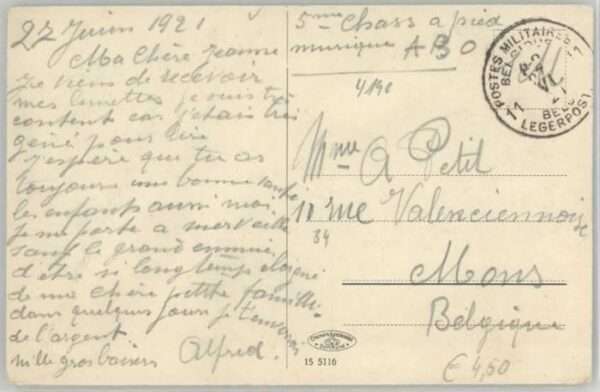 27 Juin 1921
Ma Chère Jeanne
Je viens de recevoir
mes lunettes je suis très
content car j'étais très
gêné pour lire
J'espère que tu as
toujours une bonne santé
les enfants aussi moi
je me porte a merveille
sauf le grand ennuie
d'être si longtemp eloigné
de ma chère petite famille
dans quelques jours je t'enverai
de l'argent
mille gros baisers Alfred.
5me Chass a pied
musique A B O
4190
POSTES MILITAIRES
BELGIQUE
VI
11 11
LEGERPOST
Mme A Petit
11 rue Valenciennoise
34
Mons
Belgique
15 5116
€ 4,50